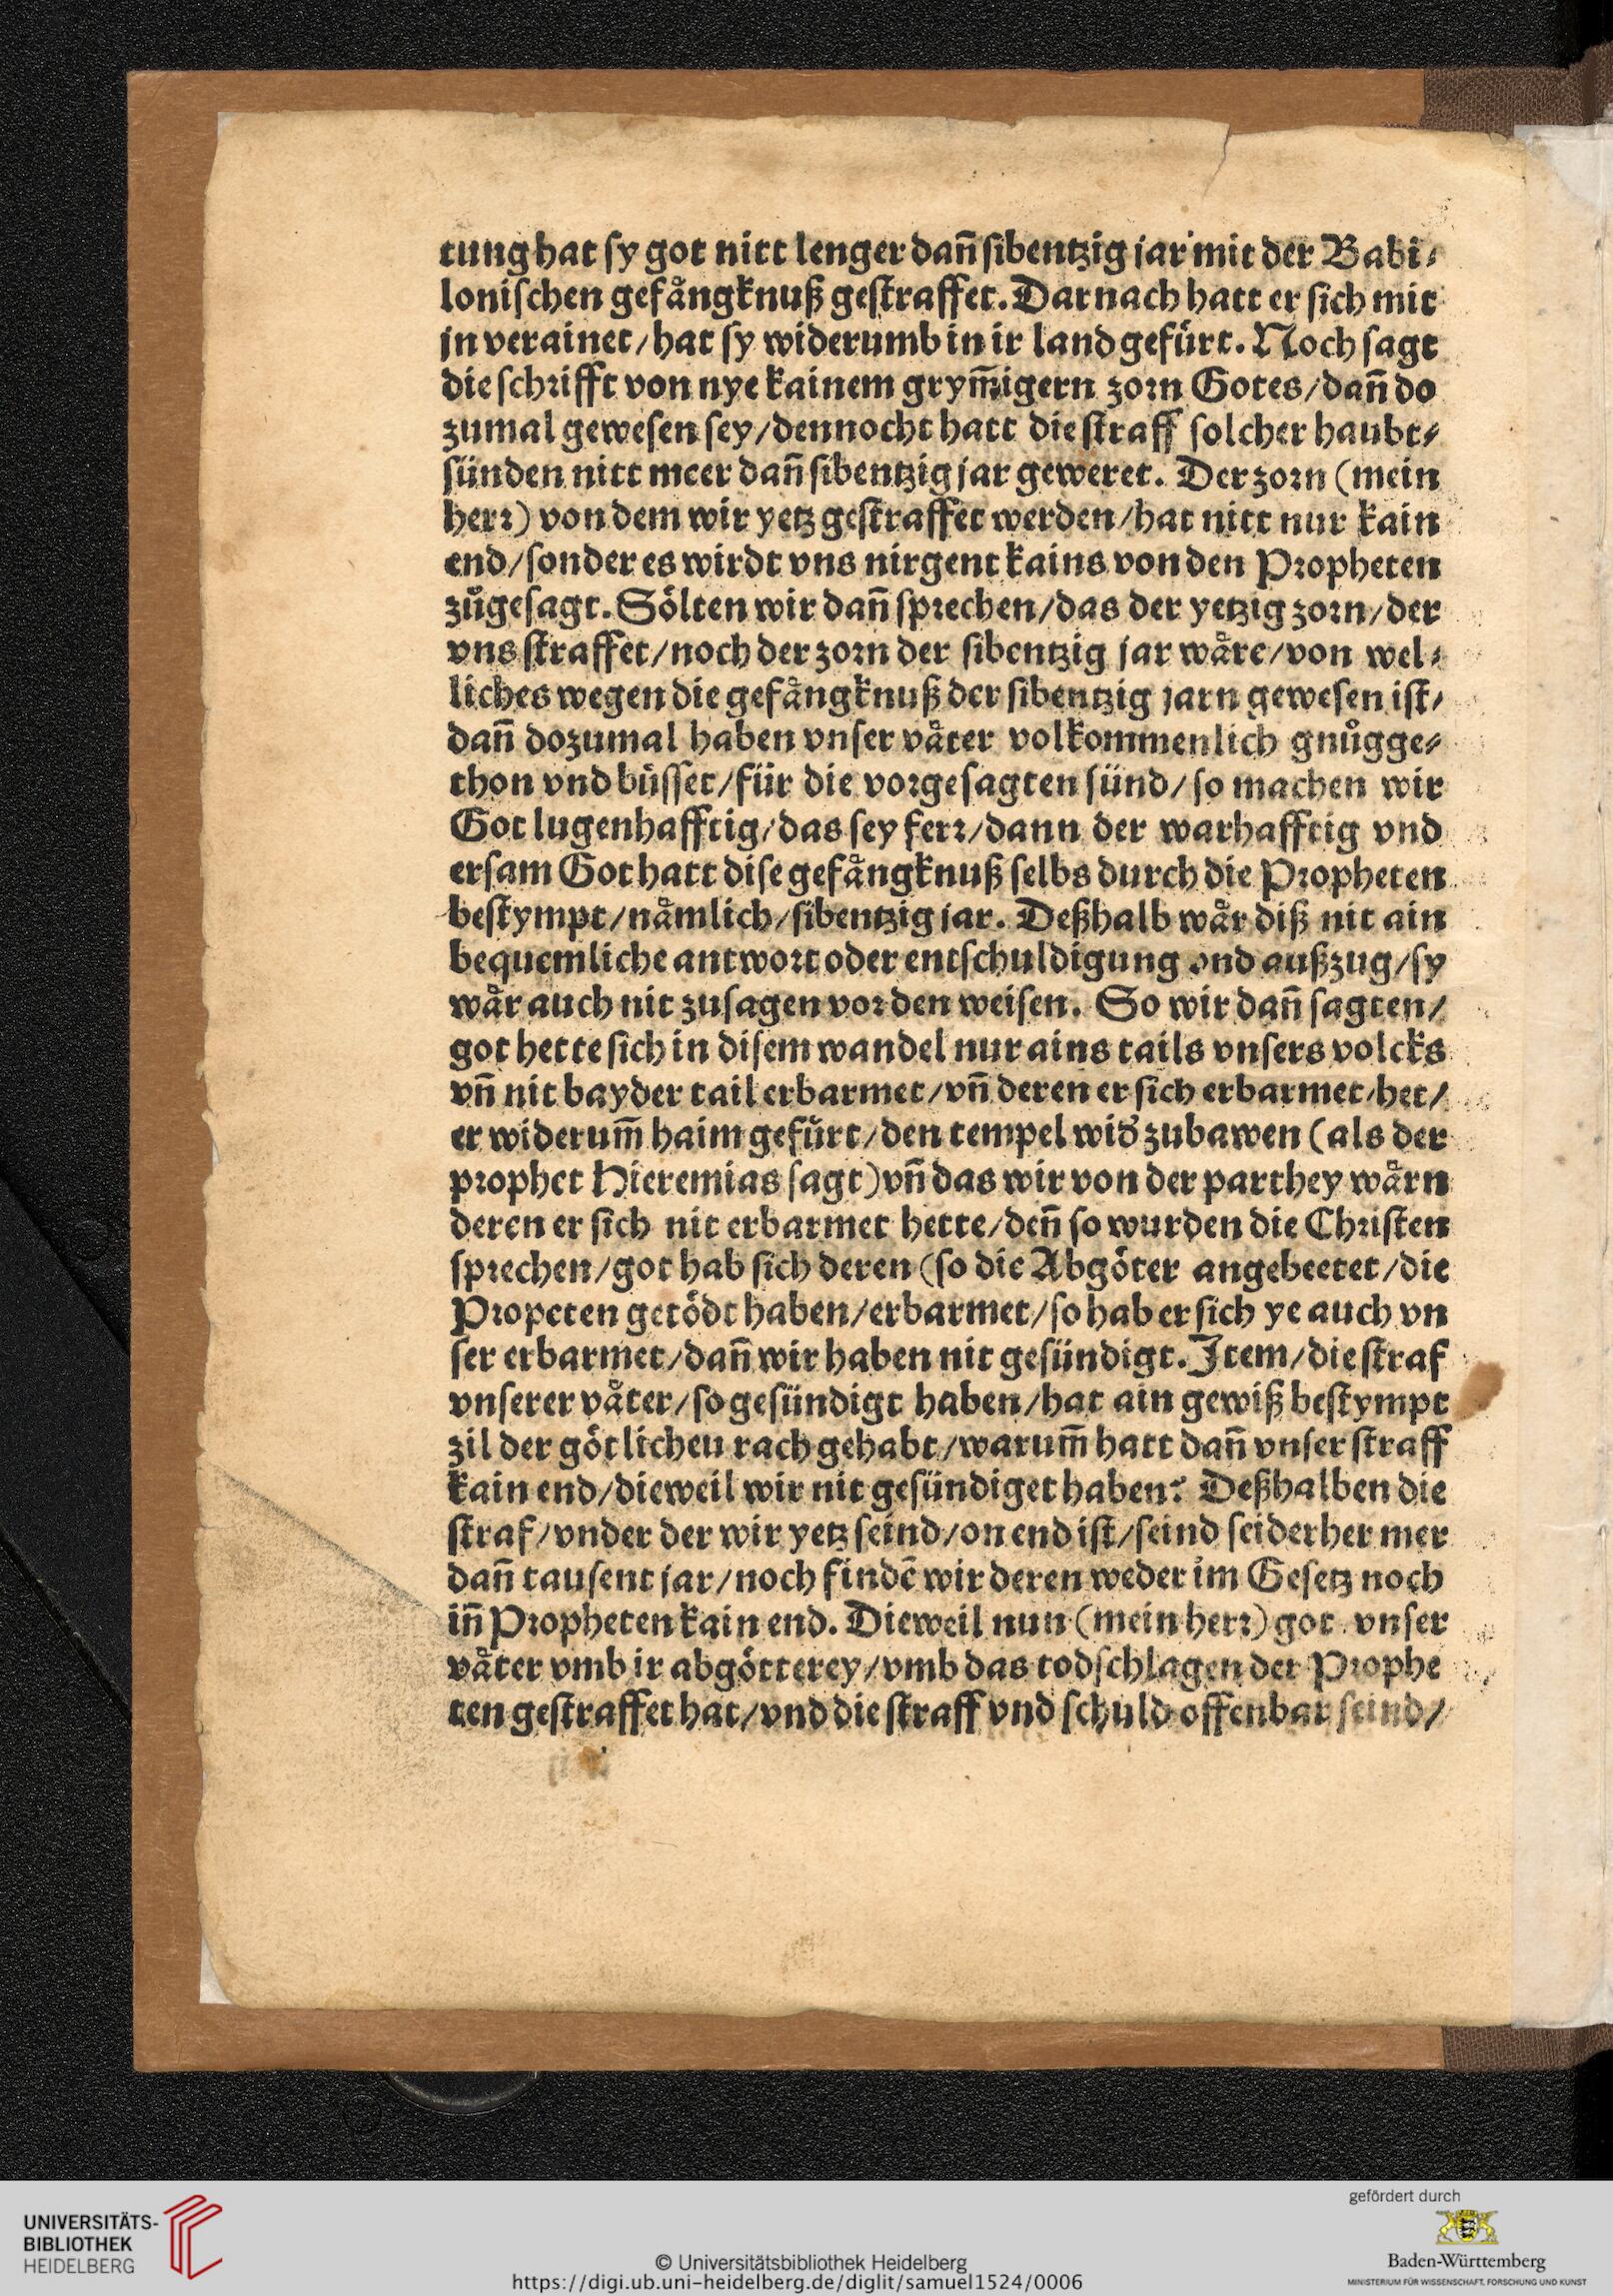 tung hat sy got nitt lenger dañ sibentzig jar mit der Babi⸗
lonischen gefåangknuß gestraffet. Darnach hatt er sich mit
jn verainet/hat sy widerumb in ir land gefürt. Noch sagt
die schrifft von nye kainem grym̃igern zorn Gotes/dañ do
zumal gewesen sey/dennocht hatt die straff solcher haubt⸗
sünden nitt meer dañ sibentzig jar geweret. Der zorn (mein
herr) von dem wir yetz gestraffet werden/hat nitt nur kain
end/sonder es wirdt vns nirgent kains von den Propheten
zůgesagt. Sölten wir dañ sprechen/das der yetzig zorn/der
vns straffet/noch der zorn der sibentzig jar wåre/von wel⸗
liches wegen die gefångknuß der sibentzig jarn gewesen ist/
dañ dozumal haben vnser våter volkommenlich gnůgge⸗
thon vnd büsset/für die vorgesagten sünd/so machen wir
Got lugenhafftig/das sey ferr/dann der warhafftig vnd
ersam Got hatt dise gefångknuß selbs durch die Propheten
bestympt/nåmlich/sibentzig jar. Deßhalb wår diß nit ain
bequemliche antwort oder entschuldigung vnd außzug/sy
wår auch nit zusagen vor den weisen. So wir dañ sagten/
got hette sich in disem wandel nur ains tails vnsers volcks
vñ nit bayder tail erbarmet/vñ deren er sich erbarmet/het/
er widerum̃ haim gefürt/den tempel wid᷑ zubawen (als der
prophet Hieremias sagt) vñ das wir von der parthey wårn
deren er sich nit erbarmet hette/deñ so wurden die Christen
sprechen/got hab sich deren (so die Abgöter angebeetet/die
Propeten getödt haben/erbarmet/so hab er sich ye auch vn
ser erbarmet/dañ wir haben nit gesündigt. Item/die straf
vnserer våter/so gesündigt haben/hat ain gewiß bestympt
zil der götlicheu rach gehabt/warum̃ hatt dañ vnser straff
kain end/dieweil wir nit gesündiget haben? Deßhalben die
straf/vnder der wir yetz seind/on end ist/seind seiderher mer
dañ tausent jar/noch findẽ wir deren weder im Gesetz noch
iñ Propheten kain end. Dieweil nun (mein herr) got vnser
våter vmb ir abgötterey/vmb das todschlagen der Prophe
ten gestraffet hat/vnd die straff vnd schuld offenbar seind/
UNIVERSITÄTS-
BIBLIOTHEK
HEIDELBERG
© Universitätsbibliothek Heidelberg
https://digi.ub.uni-heidelberg.de/diglit/samuel1524/0006
gefördert durch
Baden-Württemberg
MINISTERIUM FÜR WISSENSCHAFT, FORSCHUNG UND KUNST